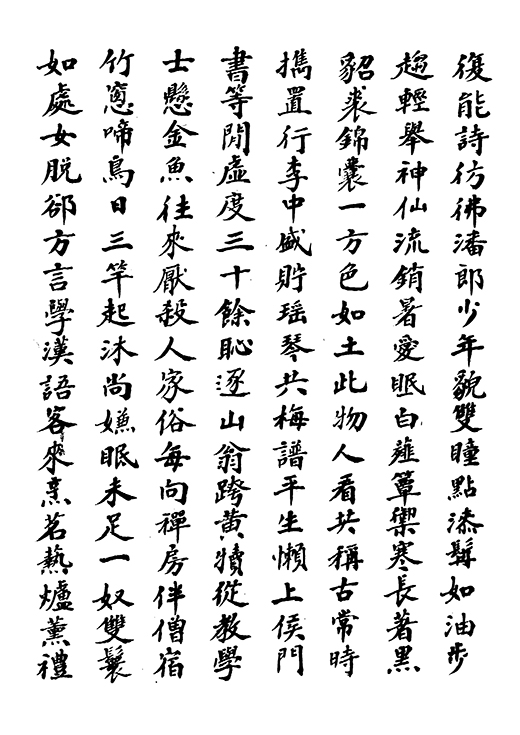 復能詩彷彿潘郎少年貌雙瞳點漆鬒如油步
趨輕舉神仙流銷暑愛眠白薤簟禦寒長著黑
貂裘錦囊一方色如土此物人看共稱古常時
擕置行李中盛貯瑶琴共梅譜平生懶上侯門
書等閒虛度三十餘恥逐山翁跨黄犢從教學
士懸金魚往來厭殺人家俗每向禪房伴僧宿
竹窻啼鳥日三竿起沐尚嫌眠未足一奴雙鬟
如處女脱郤方言學漢語客來烹茗熱爐薰禮